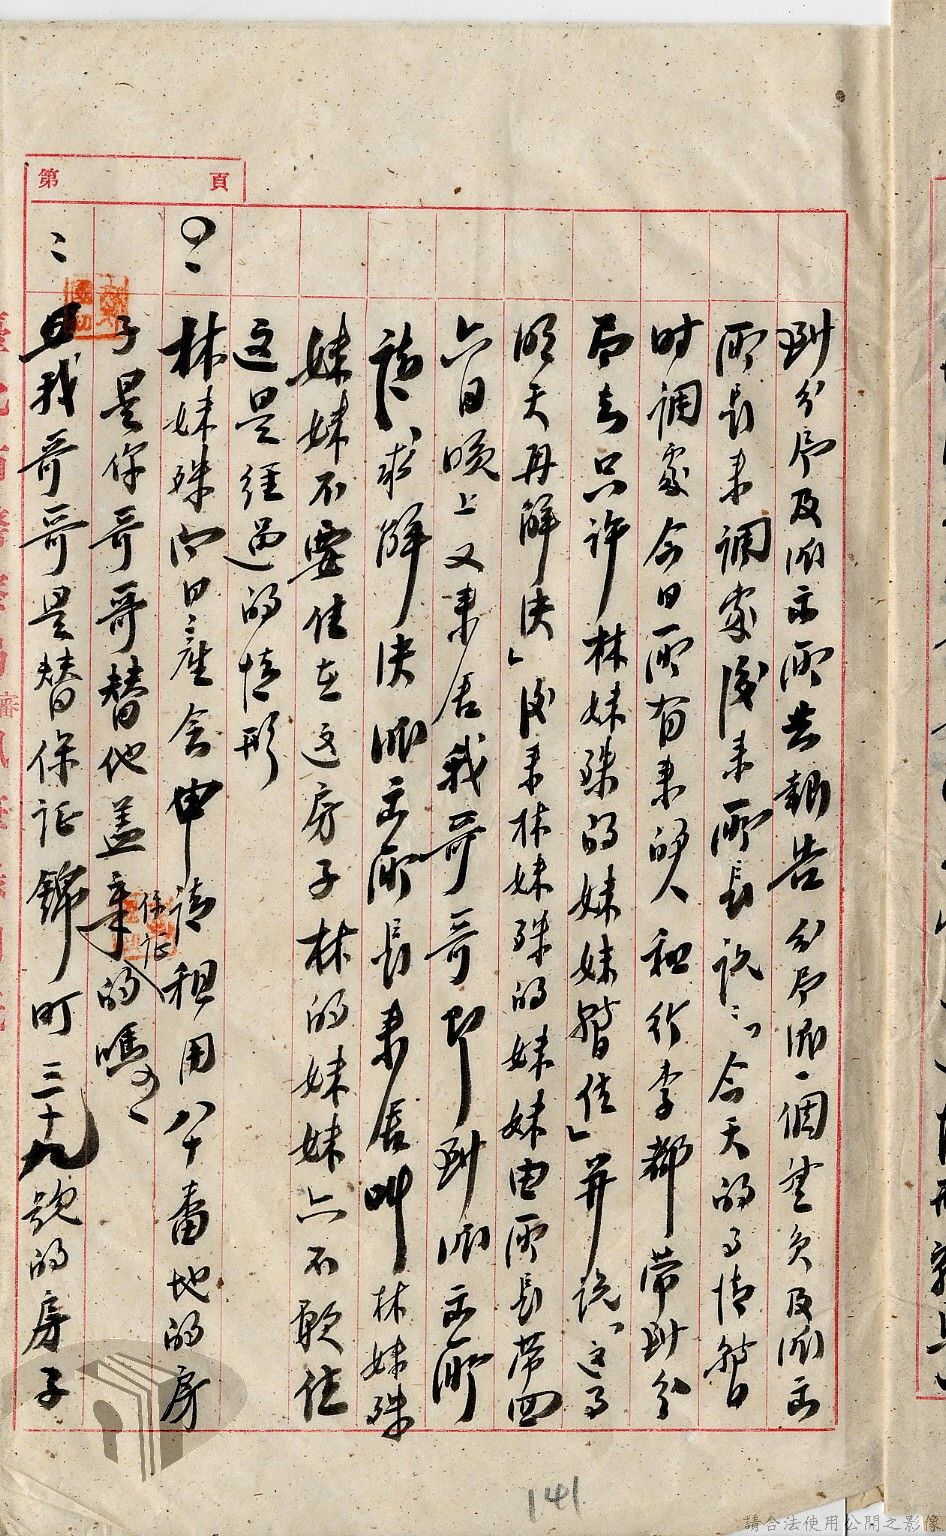 第 頁
到分局及派出所去報告分局派一個警員及派出
所長来調處後来所長說:「今天的事情暫
时調處今日所有来的人和行李都帶到分
局去只許林妹珠的妹妹暫住」并説「这事
明天再解决」後来林妹珠的妹妹由所長帶回
六日晚上又来居我哥哥即到派出所
請求解决派出所長来居叫林妹珠
妹妹不要住在这房子林的妹妹亦不敢住
这是經過的情形
林妹珠向日產会申請租用八十番地的房
子是你哥哥替他盖章保証的嗎
我哥哥是替保証錦町三十九號的房子
141
請合法使用公開之影像